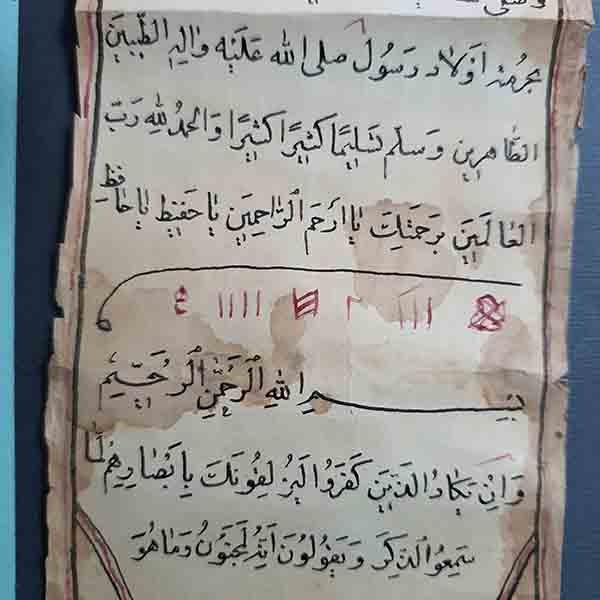 بحرمة اَوْلَاد رَسُولْ صلى الله عَلَيْهِ وَالِهِ الطَّيِّبِينَ
الطَّاهِرِين وَسَلَّم تَسْلِيمًا كَثِيرًا كَثِيرًا وَالحَمْدُ لِلّهِ رَبِّ
العَالَمِينَ بِرَحمَتِكَ يَا اَرحَم الرَّاحِمِينَ يَا حَفِيظ يَا حَافِظ
بِسْمِ اللهِ الرَّحْمٰنِ الرَّحِيمِ
وَاِن يَكَادُ الَّذِينَ كَفَرُوا لَيُزْلِقُونَكَ بِاَبْصَارِهِمْ لَمَّا
سَمِعُوا الذِّكرَ وَيَقُولُونَ اِنَّهُ لَمَجنُونُ وَمَاهُوَ